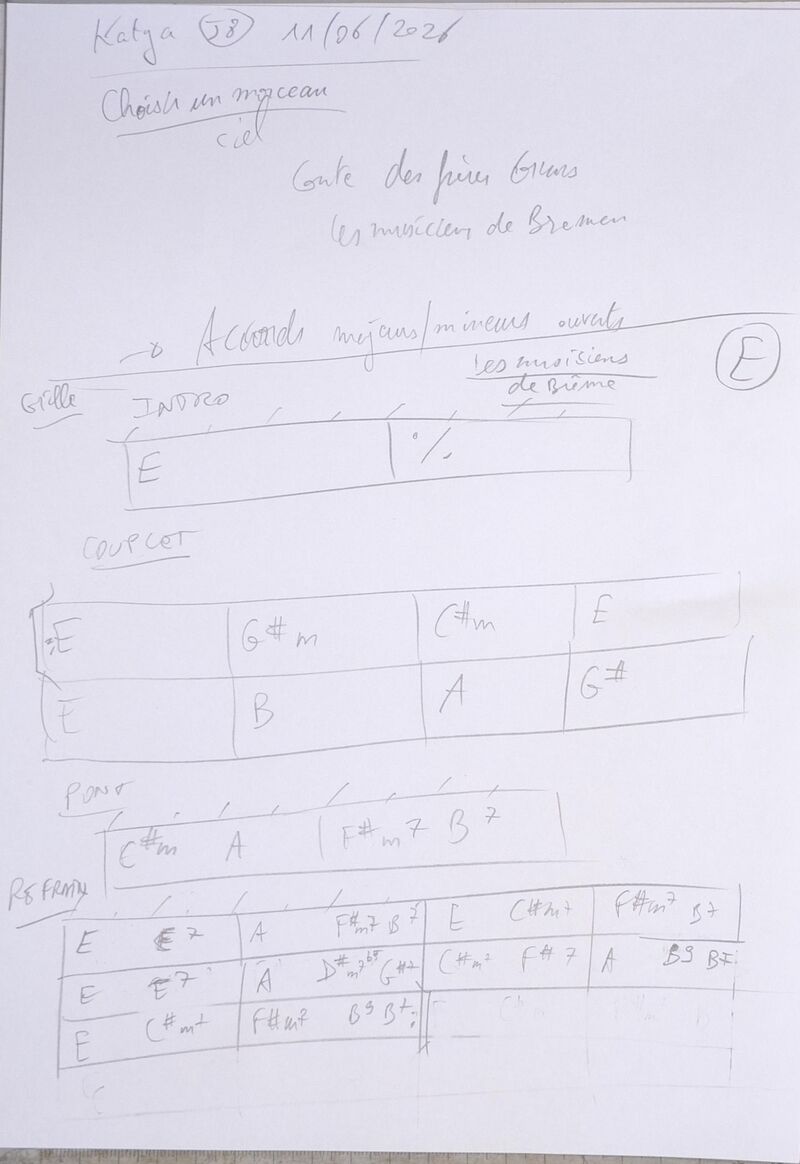 Katya J8 11/06/2026
Choisir un morceau
ciel
Conte des frères Grims
les musiciens de Bremen
→ Accords majeurs/mineurs ouverts
les musiciens
de Brême
E
Grille INTRO
E ٪
COUPLET
E G#m C#m E
E B A G#
PONT
C#m A F#m7 B7
REFRAIN
E E7 A F#m7 B7 E C#m7 F#m7 B7
E E7 A D#m7b5 G#7 C#m7 F#7 A B9 B7
E C#m7 F#m7 B9 B7